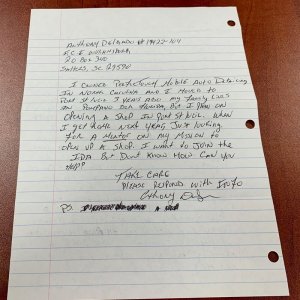 Anthony Delgado #19422-104
F.C.I Williamsburg
PO Box 340
Salters, SC 29590
I owned Perfectionist Mobile Auto Detailing
in North Carolina and I moved to
Port St Luci 3 years ago my family lives
in Pompano Bch Florida, but I plan on
opening a shop in Port St Luci. When
I get home next year Just looking
for a mentor on my mission to
open up a shop. I want to join the
IDA but dont know how can you
help?
Take care
Please respond with info
PS.